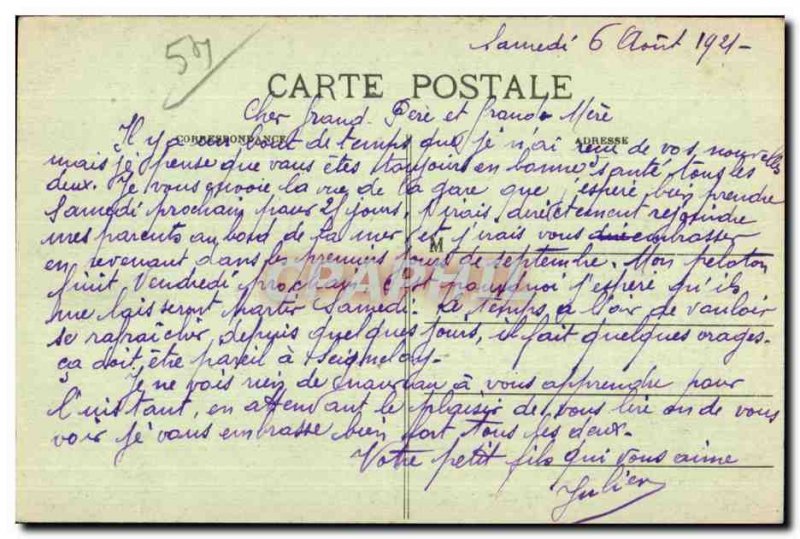 57
Samedi 6 Août 1921-
CARTE POSTALE
Cher Grand-Père et Grand-Mère
CORRESPONDANCE
ADRESSE
Il y a un bout de temps que je n'ai reçu de vos nouvelles
mais je pense que vous êtes toujours en bonne santé tous les
deux. Je vous envoie la vue de la gare que j'espère bien prendre
Samedi prochain pour 25 jours. J'irais directement rejoindre
mes parents au bord de la mer et j'irais vous embrasser
M
en revenant dans les premiers jours de septembre. Mon peloton
finit Vendredi prochain c'est pourquoi j'espère qu'ils
me laisseront partir Samedi. Le temps a l'air de vouloir
se rafraîcher, depuis quelques jours, il fait quelques orages.
ça doit être pareil à Seignelay.
Je ne vois rien de nouveau à vous apprendre pour
l'instant, en attendant le plaisir de vous lire ou de vous
voir je vous embrasse bien fort tous les deux.
Votre petit fils qui vous aime
Julien
CPAPHIL